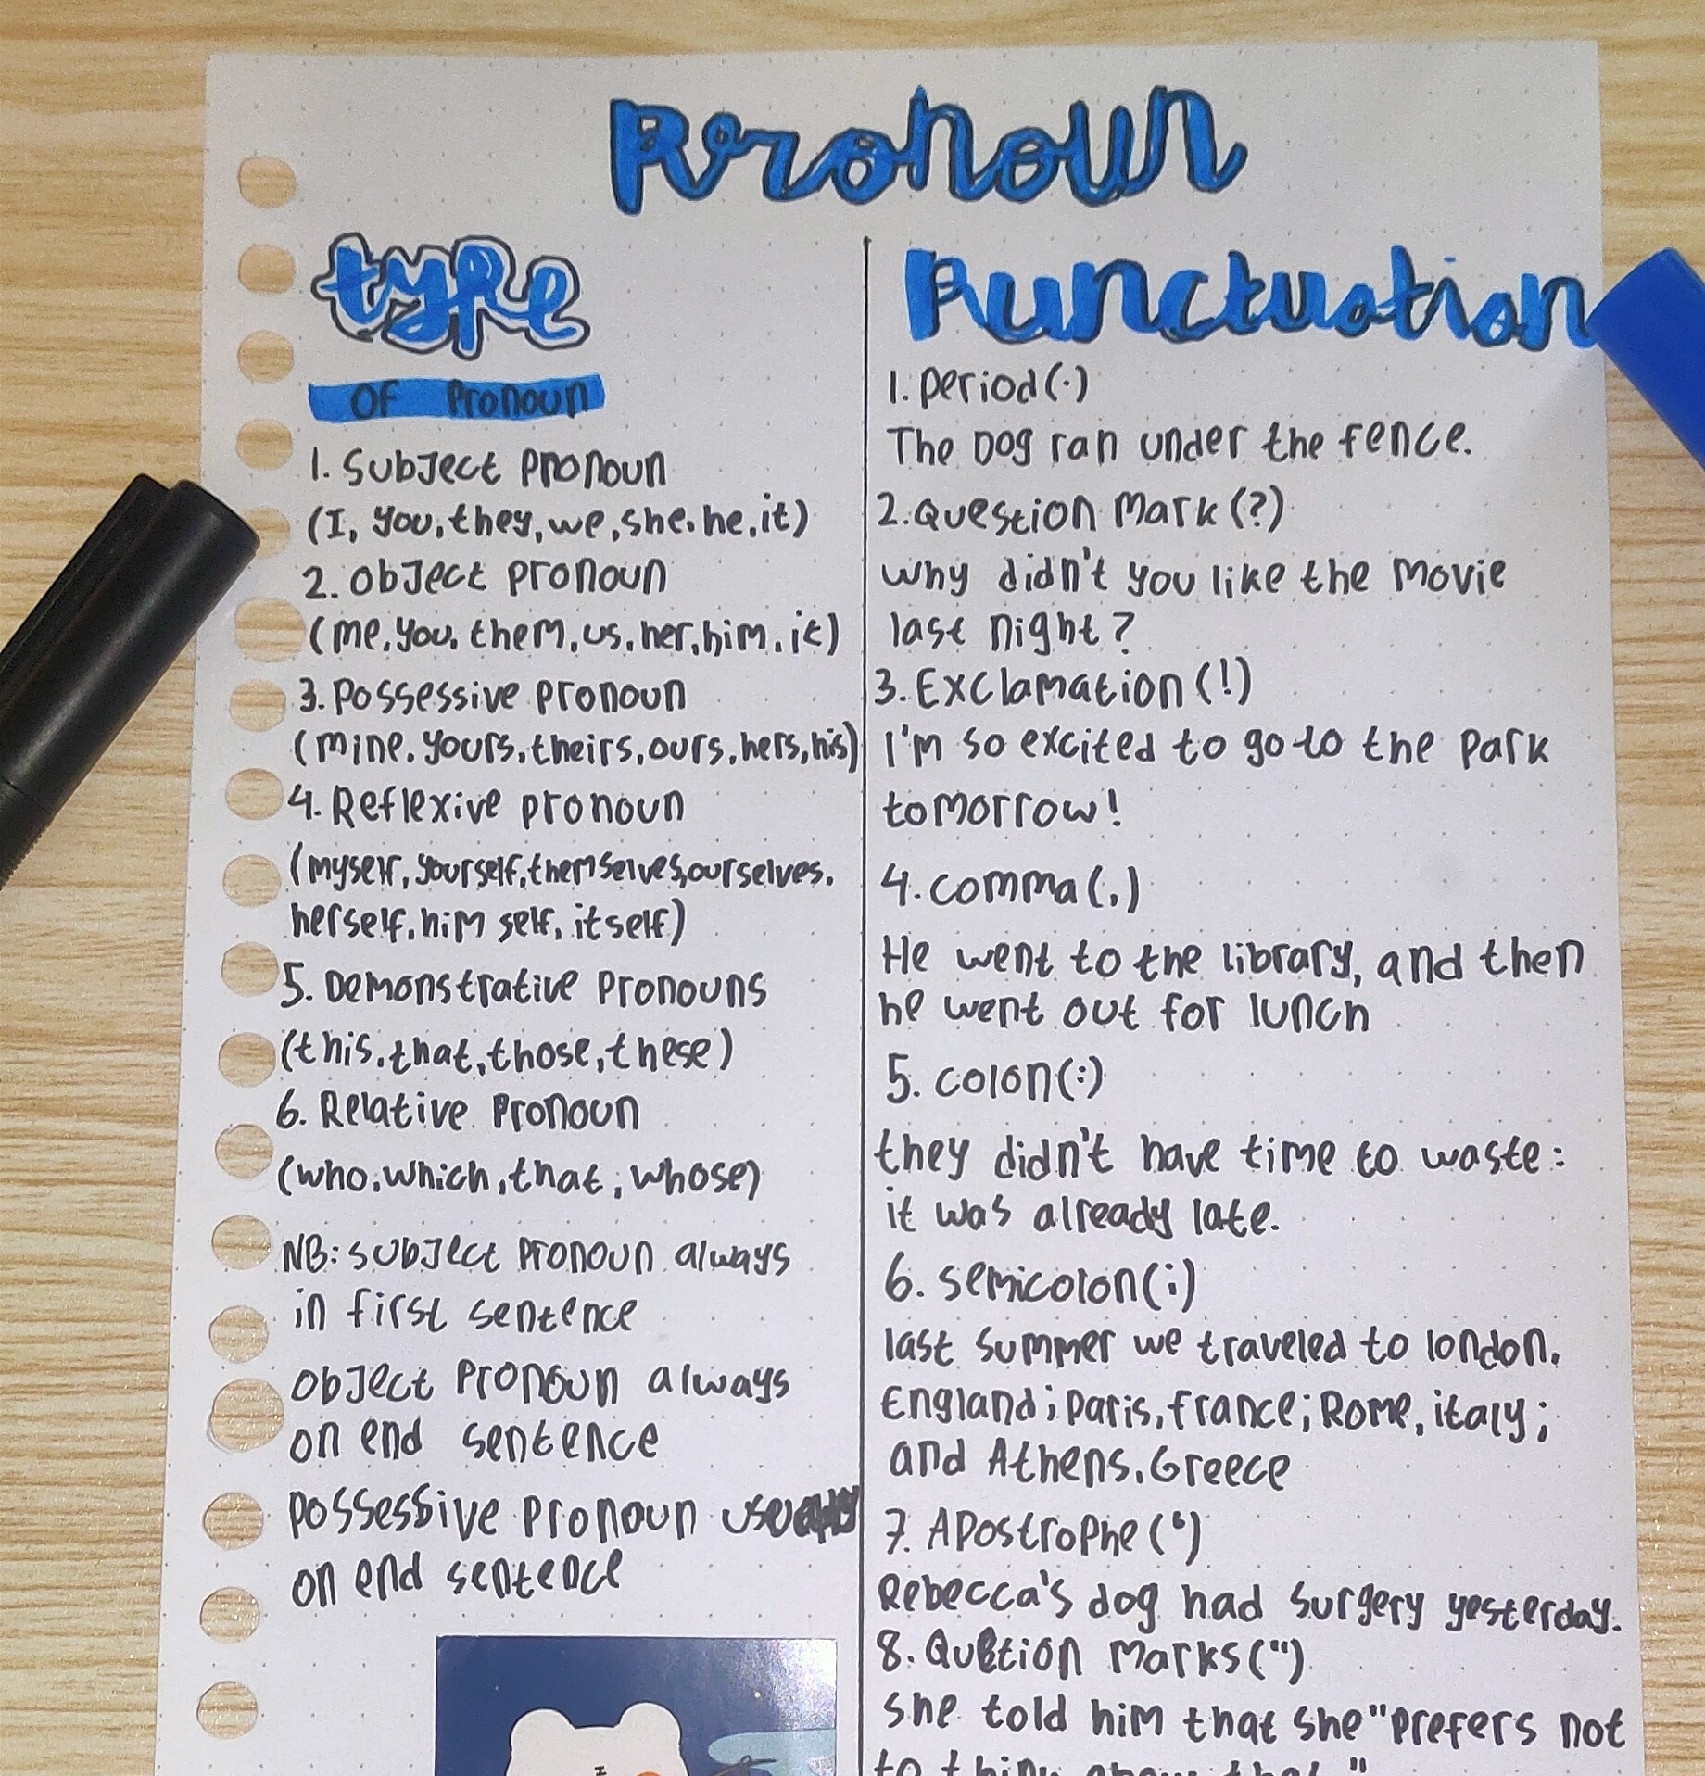 Pronoun
type
Of Pronoun
1. Subject pronoun
(I, you, they, we, she, he, it)
2. Object pronoun
(me, you, them, us, her, him, it)
3. Possessive pronoun
(mine, yours, theirs, ours, hers, his)
4. Reflexive pronoun
(myself, yourself, themselves, ourselves,
herself, him self, itself)
5. Demonstrative pronouns
(this, that, those, these)
6. Relative pronoun
(who, which, that, whose)
NB: subject pronoun always
in first sentence
object pronoun always
on end sentence
possessive pronoun usually
on end sentence
Punctuation
1. Period(.)
The Dog ran under the fence.
2. Question Mark (?)
why didn't you like the movie
last night?
3. Exclamation (!)
I'm so excited to go to the park
tomorrow!
4. comma(,)
He went to the library, and then
he went out for lunch
5. colon(:)
they didn't have time to waste:
it was already late.
6. semicolon(;)
last summer we traveled to london,
England; paris, france; Rome, italy;
and Athens, Greece
7. Apostrophe (')
Rebecca's dog had surgery yesterday.
8. Quotion Marks(")
she told him that she "prefers not
to think about that."